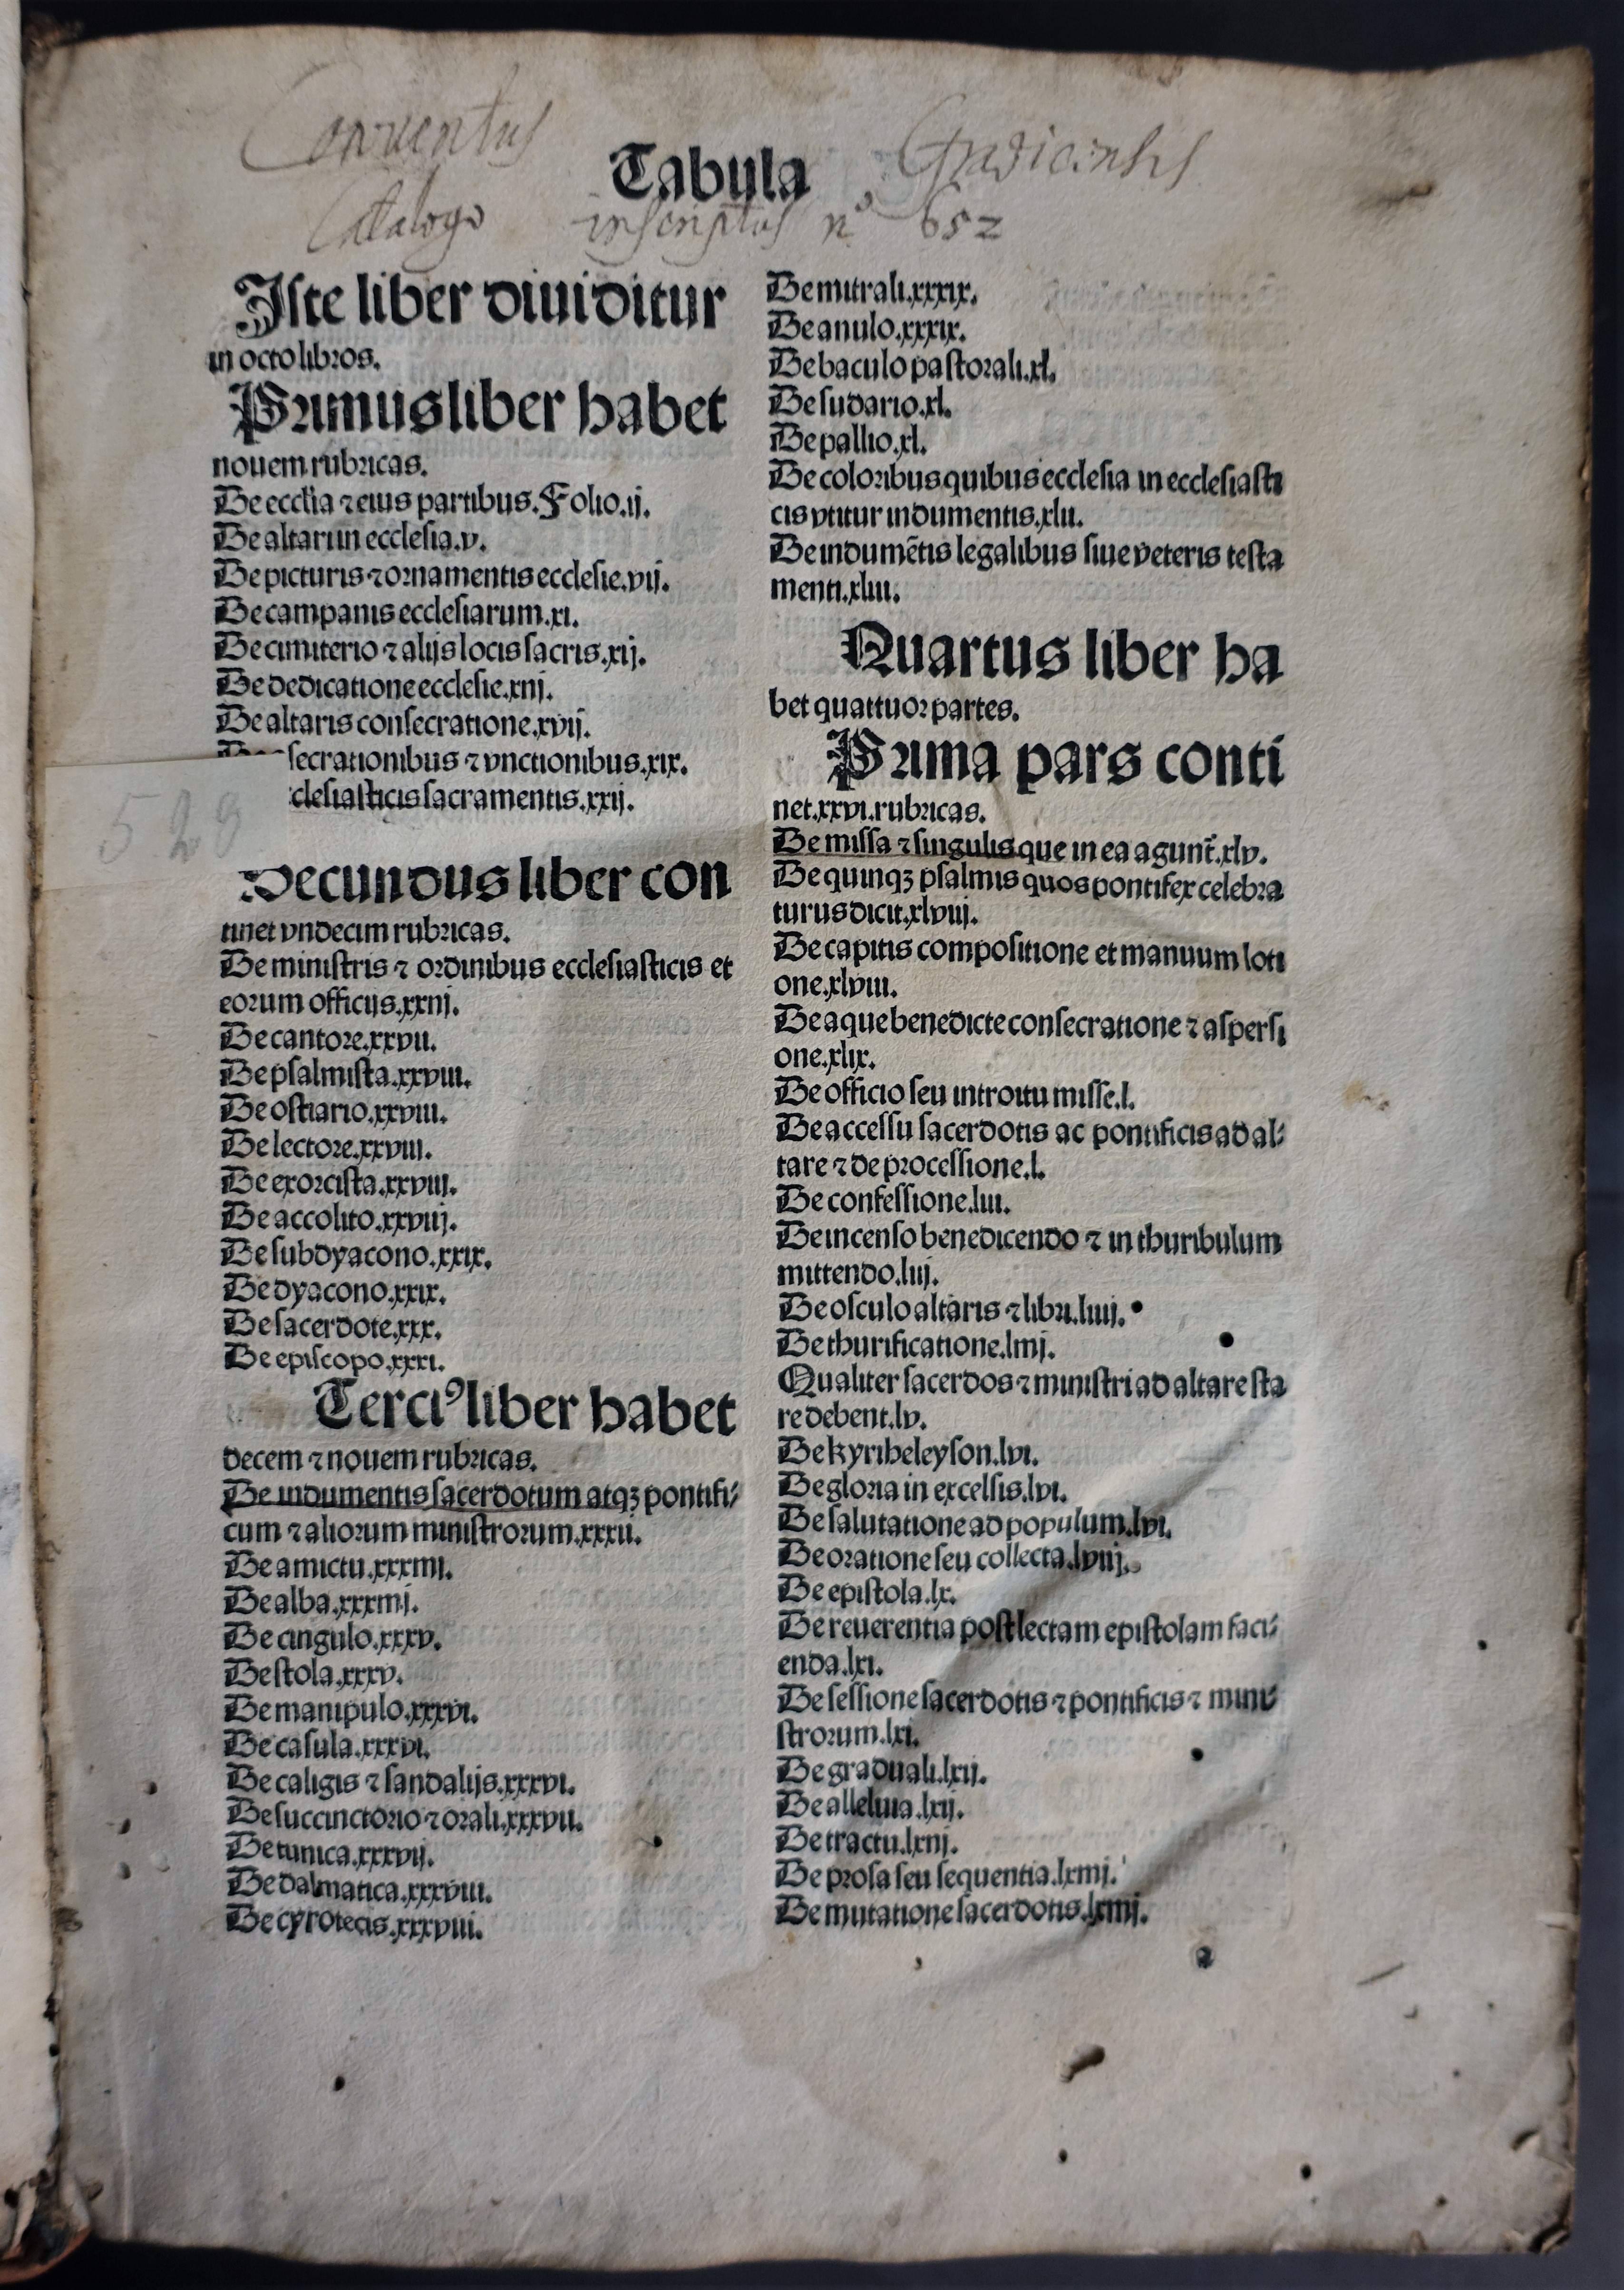 Conventus Gradicensis
Tabula
Catalogo inscriptus n° 652
Iste liber diuiditur
in octo libros.
Primus liber habet
nouem rubricas.
De ecclia ⁊ eius partibus. Folio.ij.
De altari in ecclesia.v.
De picturis ⁊ ornamentis ecclesie.vij.
De campanis ecclesiarum.xi.
De cimiterio ⁊ alijs locis sacris.xij.
De dedicatione ecclesie.xiij.
De altaris consecratione.xvij.
secrationibus ⁊ vnctionibus.xix.
clesiasticis sacramentis.xxij.
529
Secundus liber con
tinet vndecim rubricas.
De ministris ⁊ ordinibus ecclesiasticis et
eorum officijs.xxiij.
De cantore.xxvii.
De psalmista.xxviii.
De ostiario.xxviii.
De lectore.xxviii.
De exorcista.xxviii.
De accolito.xxviij.
De subdyacono.xxix.
De dyacono.xxix.
De sacerdote.xxx.
De episcopo.xxxi.
Terciꝰ liber habet
decem ⁊ nouem rubricas.
De indumentis sacerdotum atqꝫ pontifi⸗
cum ⁊ aliorum ministrorum.xxxii.
De amictu.xxxiiij.
De alba.xxxiiij.
De cingulo.xxxv.
De stola.xxxv.
De manipulo.xxxvi.
De casula.xxxvi.
De caligis ⁊ sandalijs.xxxvi.
De succinctorio ⁊ orali.xxxvii.
De tunica.xxxvij.
De dalmatica.xxxviii.
De cyrotecis.xxxviii.
De mitrali.xxxix.
De anulo.xxxix.
De baculo pastorali.xl.
De sudario.xl.
De pallio.xl.
De coloribus quibus ecclesia in ecclesiasti
cis vtitur indumentis.xlii.
De indumētis legalibus siue veteris testa
menti.xliii.
Quartus liber ha
bet quattuor partes.
Prima pars conti
net.xxvi.rubricas.
De missa ⁊ singulis que in ea agunt̃.xlv.
De quinqꝫ psalmis quos pontifex celebra
turus dicit.xlviij.
De capitis compositione et manuum loti
one.xlviii.
De aque benedicte consecratione ⁊ aspersi
one.xlix.
De officio seu introitu misse.l.
De accessu sacerdotis ac pontificis ad al⸗
tare ⁊ de processione.l.
De confessione.liii.
De incenso benedicendo ⁊ in thuribulum
mittendo.liij.
De osculo altaris ⁊ libri.liiij.
De thurificatione.liiij.
Qualiter sacerdos ⁊ ministri ad altare sta
re debent.lv.
De kyriheleyson.lvi.
De gloria in excelsis.lvi.
De salutatione ad populum.lvi.
De oratione seu collecta.lviij.
De epistola.lx.
De reuerentia post lectam epistolam faci⸗
enda.lxi.
De sessione sacerdotis ⁊ pontificis ⁊ mini⸗
strorum.lxi.
De graduali.lxij.
De alleluia.lxij.
De tractu.lxiij.
De prosa seu sequentia.lxiiij.
De mutatione sacerdotis.lxiiij.